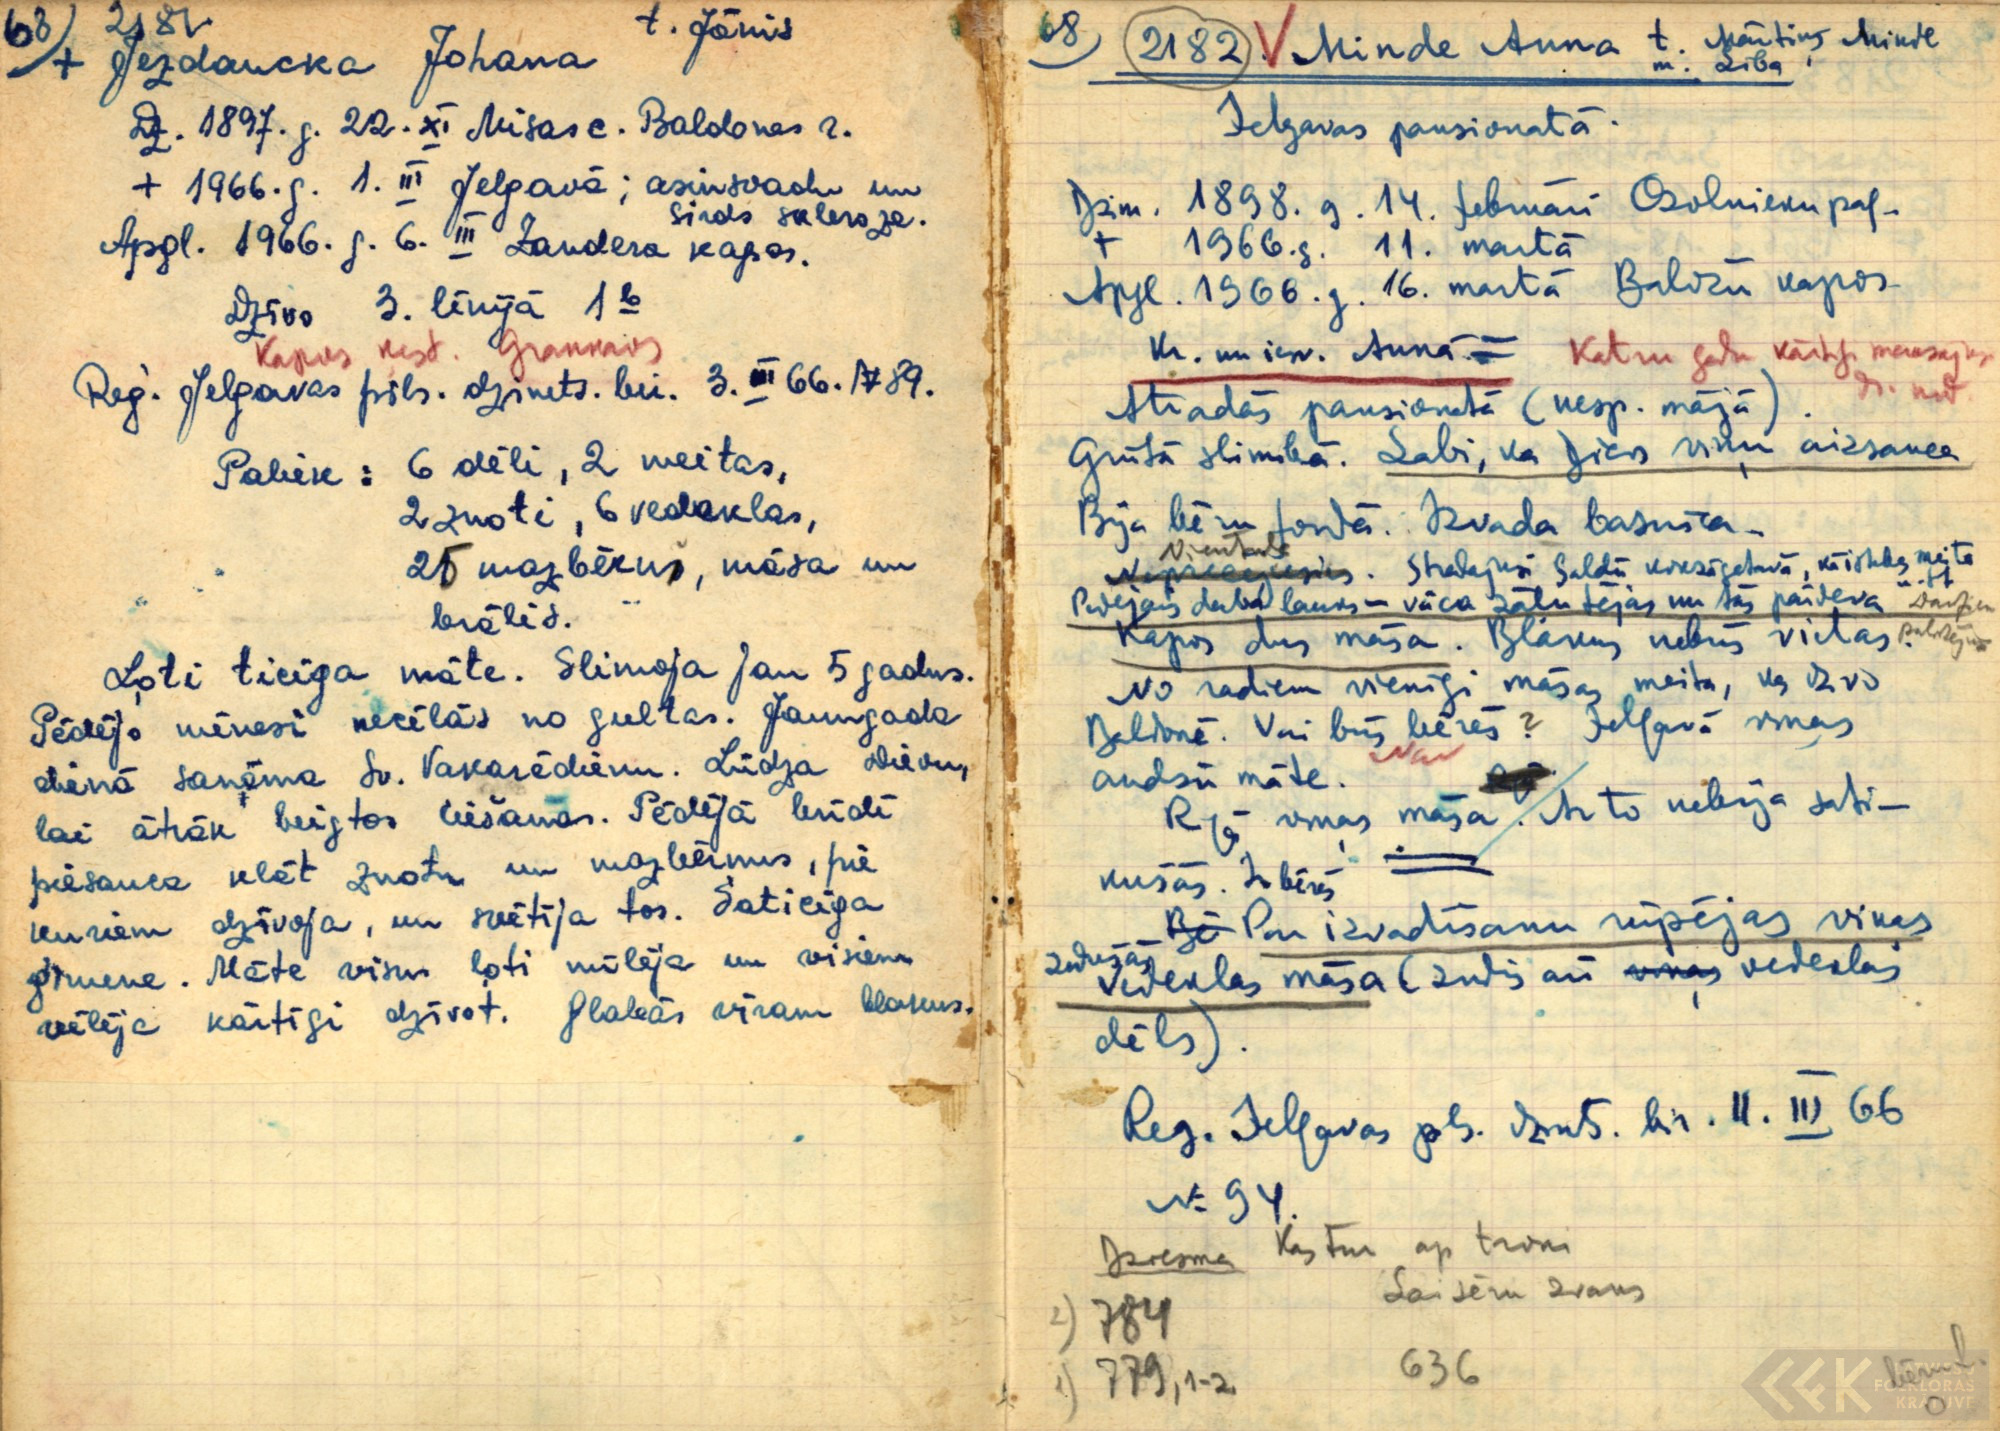 63) 2181
t. Jānis
+ Jezdaucka Johana
Dz. 1897. g. 22. XI Misas c. Baldones r.
+ 1966. g. 1. III Jelgavā; asinsvadu un
sirds skleroze.
Apgl. 1966. g. 6. III Zandera kapos.
Dzīvo 3. līnijā 1b
Kapos
Reģ. Jelgavas pils. dzimts. bir. 3. III 66. № 89.
Paliek: 6 dēli, 2 meitas,
2 znoti, 6 vedeklas,
25 mazbērni, māsa un
brālis.
Ļoti ticīga māte. Slimoja jau 5 gadus.
Pēdējo mēnesi necēlās no gultas. Jaungada
dienā saņēma Sv. Vakarēdienu. Lūdza Dievu,
lai ātrāk beigtos ciešanas. Pēdējā brīdī
piesauca klāt znotu un mazbērnus, pie
kuriem dzīvoja, un svētīja tos. Saticīga
ģimene. Māte visus ļoti mīlēja un visiem
vēlēja kārtīgi dzīvot. Glabās vīram blakus.
68) 2182. V Minde Anna t. Mārtiņš Minde
m. Lība
Jelgavas pansionatā.
Dzim. 1898. g. 14. februārī Ozolnieku pag.
+ 1966. g. 11. martā
Apgl. 1966. g. 16. martā Baložu kapos
Kr. un iesv. Annā = Katru gadu kārtīgi
Atradās pansionatā (nesp. mājā).
Grūtā slimībā. Labi, ka Dievs viņu aizsauca
Bija bēru fondā. Izvada baznīca
Vientule
Neprecējusies. Strādājusi Saldū kokzāģētavā, meita
Pēdējais darba lauks – vāca zāļu tējas un tās pārdeva
Kapos dus māsa. Blakus nebūs vietas.
No radiem vienīgi māsas meita, kas dzīvo
Baldonē. Vai būs bērēs? Jelgavā viņas
Nav
audžu māte.
Rīgā viņas māsa. Ar to nebija sati-
kušās. Ir bērēs
Par izvadīšanu rūpējas viņas
zudušās
vedeklas māsa (zudis arī viņas vedeklas
dēls).
Reg. Jelgavas pils. dzimts. bir. 11. III 66
№ 94.
Dziesma Kas tur ap troni
Lai bēru zvans
2) 784
1) 779, 1-2. 636
LATVIEŠU
FOLKLORAS
KRĀTUVE